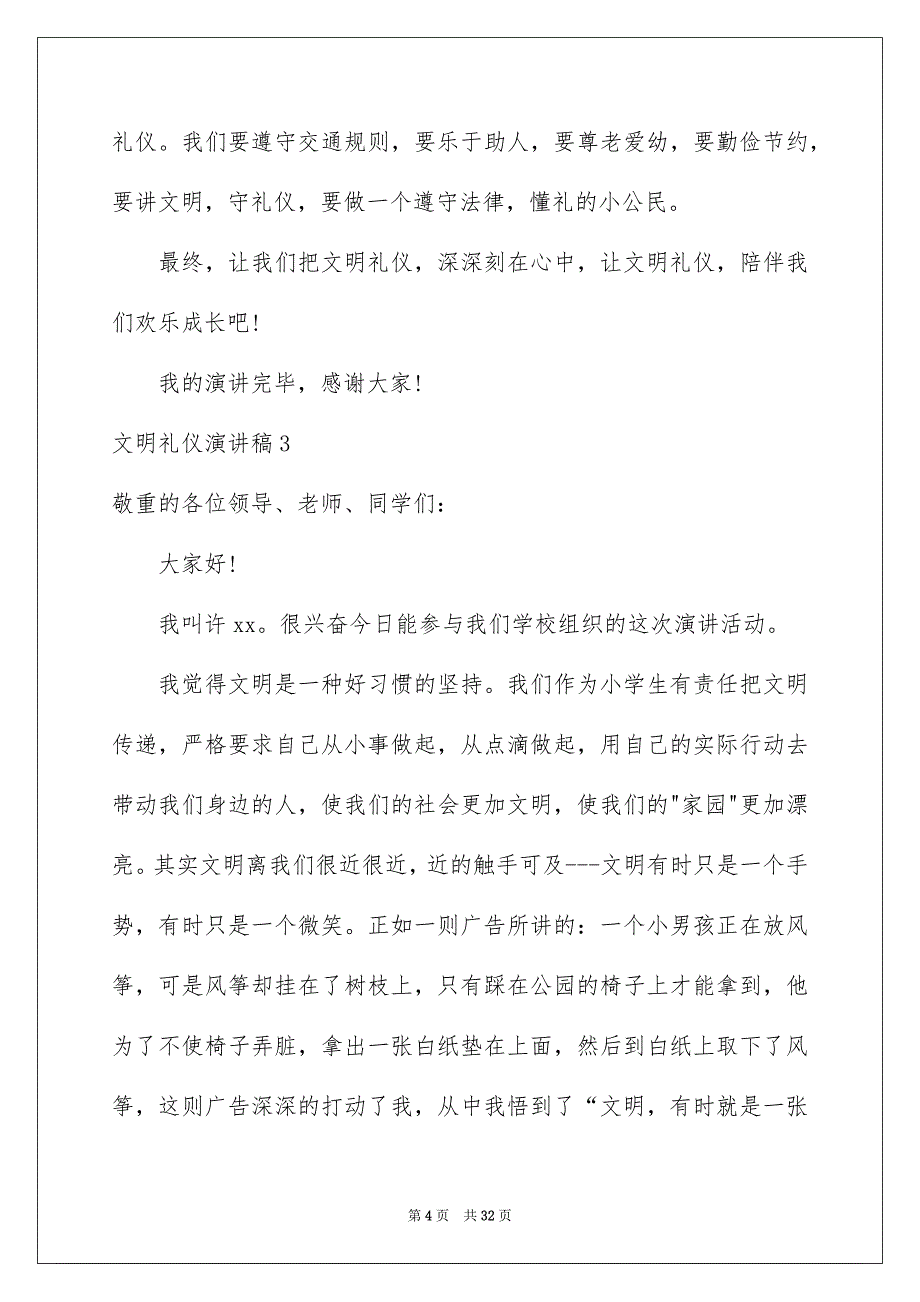 礼仪。我们要遵守交通规则，要乐于助人，要尊老爱幼，要勤俭节约，
要讲文明，守礼仪，要做一个遵守法律，懂礼的小公民。
最终，让我们把文明礼仪，深深刻在心中，让文明礼仪，陪伴我
们欢乐成长吧!
我的演讲完毕，感谢大家!
文明礼仪演讲稿 3
敬重的各位领导、老师、同学们：
大家好!
我叫许 xx。很兴奋今日能参与我们学校组织的这次演讲活动。
我觉得文明是一种好习惯的坚持。我们作为小学生有责任把文明
传递，严格要求自己从小事做起，从点滴做起，用自己的实际行动去
带动我们身边的人，使我们的社会更加文明，使我们的"家园"更加漂
亮。其实文明离我们很近很近，近的触手可及---文明有时只是一个手
势，有时只是一个微笑。正如一则广告所讲的：一个小男孩正在放风
筝，可是风筝却挂在了树枝上，只有踩在公园的椅子上才能拿到，他
为了不使椅子弄脏，拿出一张白纸垫在上面，然后到白纸上取下了风
筝，这则广告深深的打动了我，从中我悟到了“文明，有时就是一张
第 4 页 共 32 页